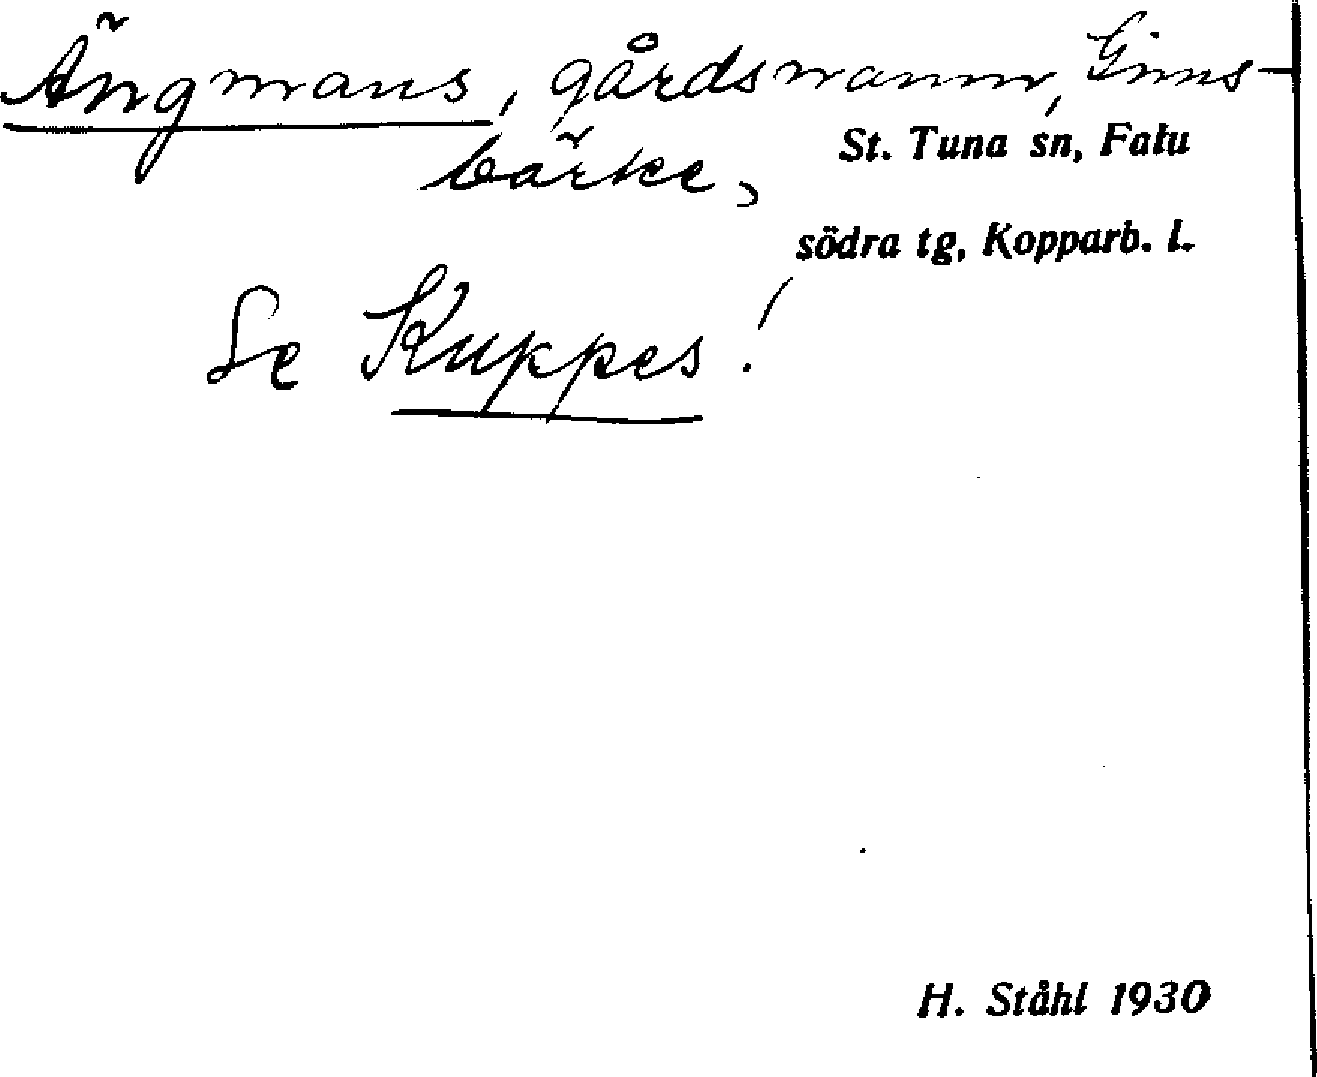 Ängmans, gårdsnamn, Ginns-
bärke, St. Tuna sn, Falu
södra tg, Kopparb. l.
Se Kuppes!
H. Ståhl 1930